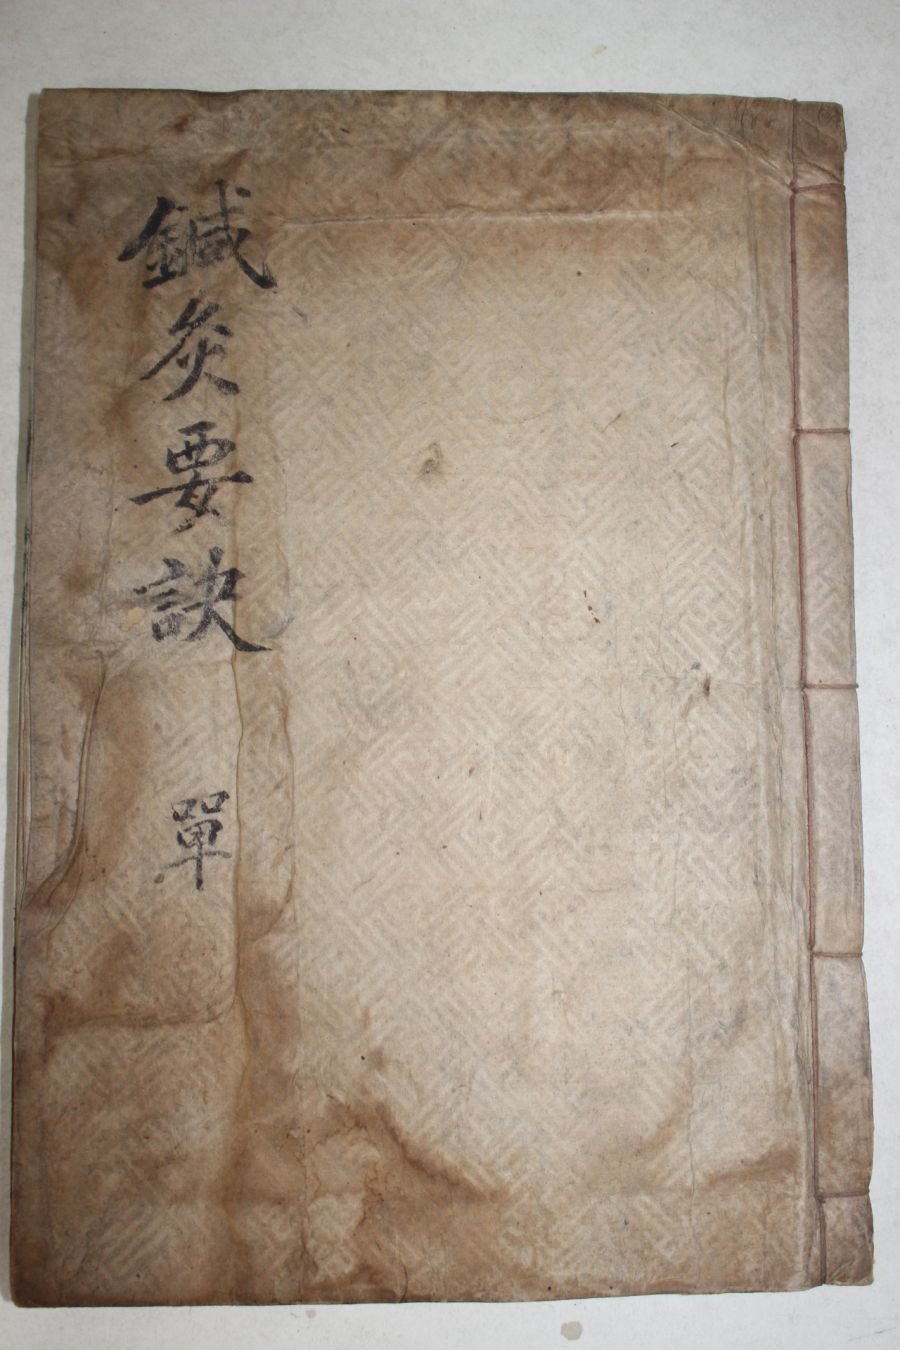 鍼灸要訣 單